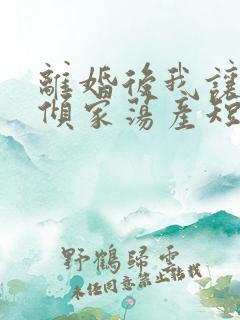 離婚後我讓
傾家蕩產短
野鶴歸雲
未经同意禁止转载